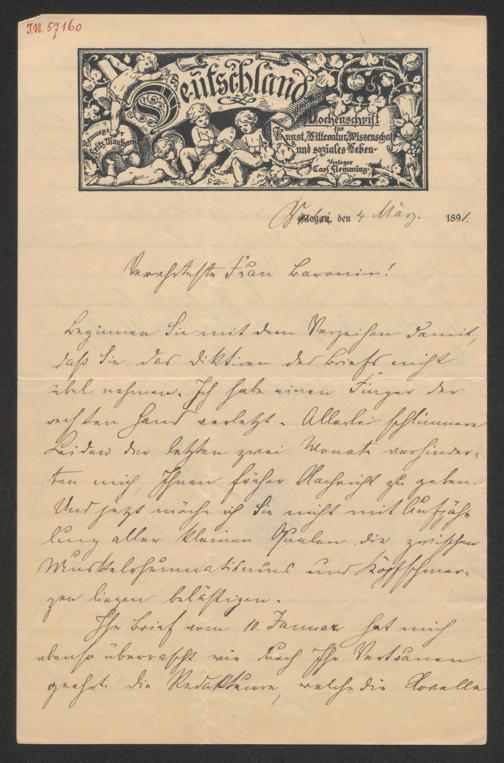 I.N. 57160
Deutschland
Wochenschrift
für
Kunst, Litteratur, Wissenschaft
und soziales Leben.
Verleger
Carl Flemming.
Fritz Mauthner
Glogau, den 4 März. 1891.
Verehrteste Frau Baronin!
Beginnen Sie mit dem Verzeihen damit,
daß Sie das Diktiren des Briefs nicht
übel nehmen. Ich habe einen Finger der
rechten Hand verletzt. Allerlei schlimmere
Leiden der letzten zwei Monate verhinder-
ten mich, Ihnen früher Nachricht zu geben.
Und jetzt möchte ich Sie nicht mit Aufzäh-
lung aller kleinen Qualen die zwischen
Muskelrheumatismus und Kopfschmer-
zen liegen belästigen.
Ihr Brief vom 10. Januar hat mich
ebenso überrascht wie durch Ihr Vertrauen
geehrt. Die Redakteure, welche die Novelle